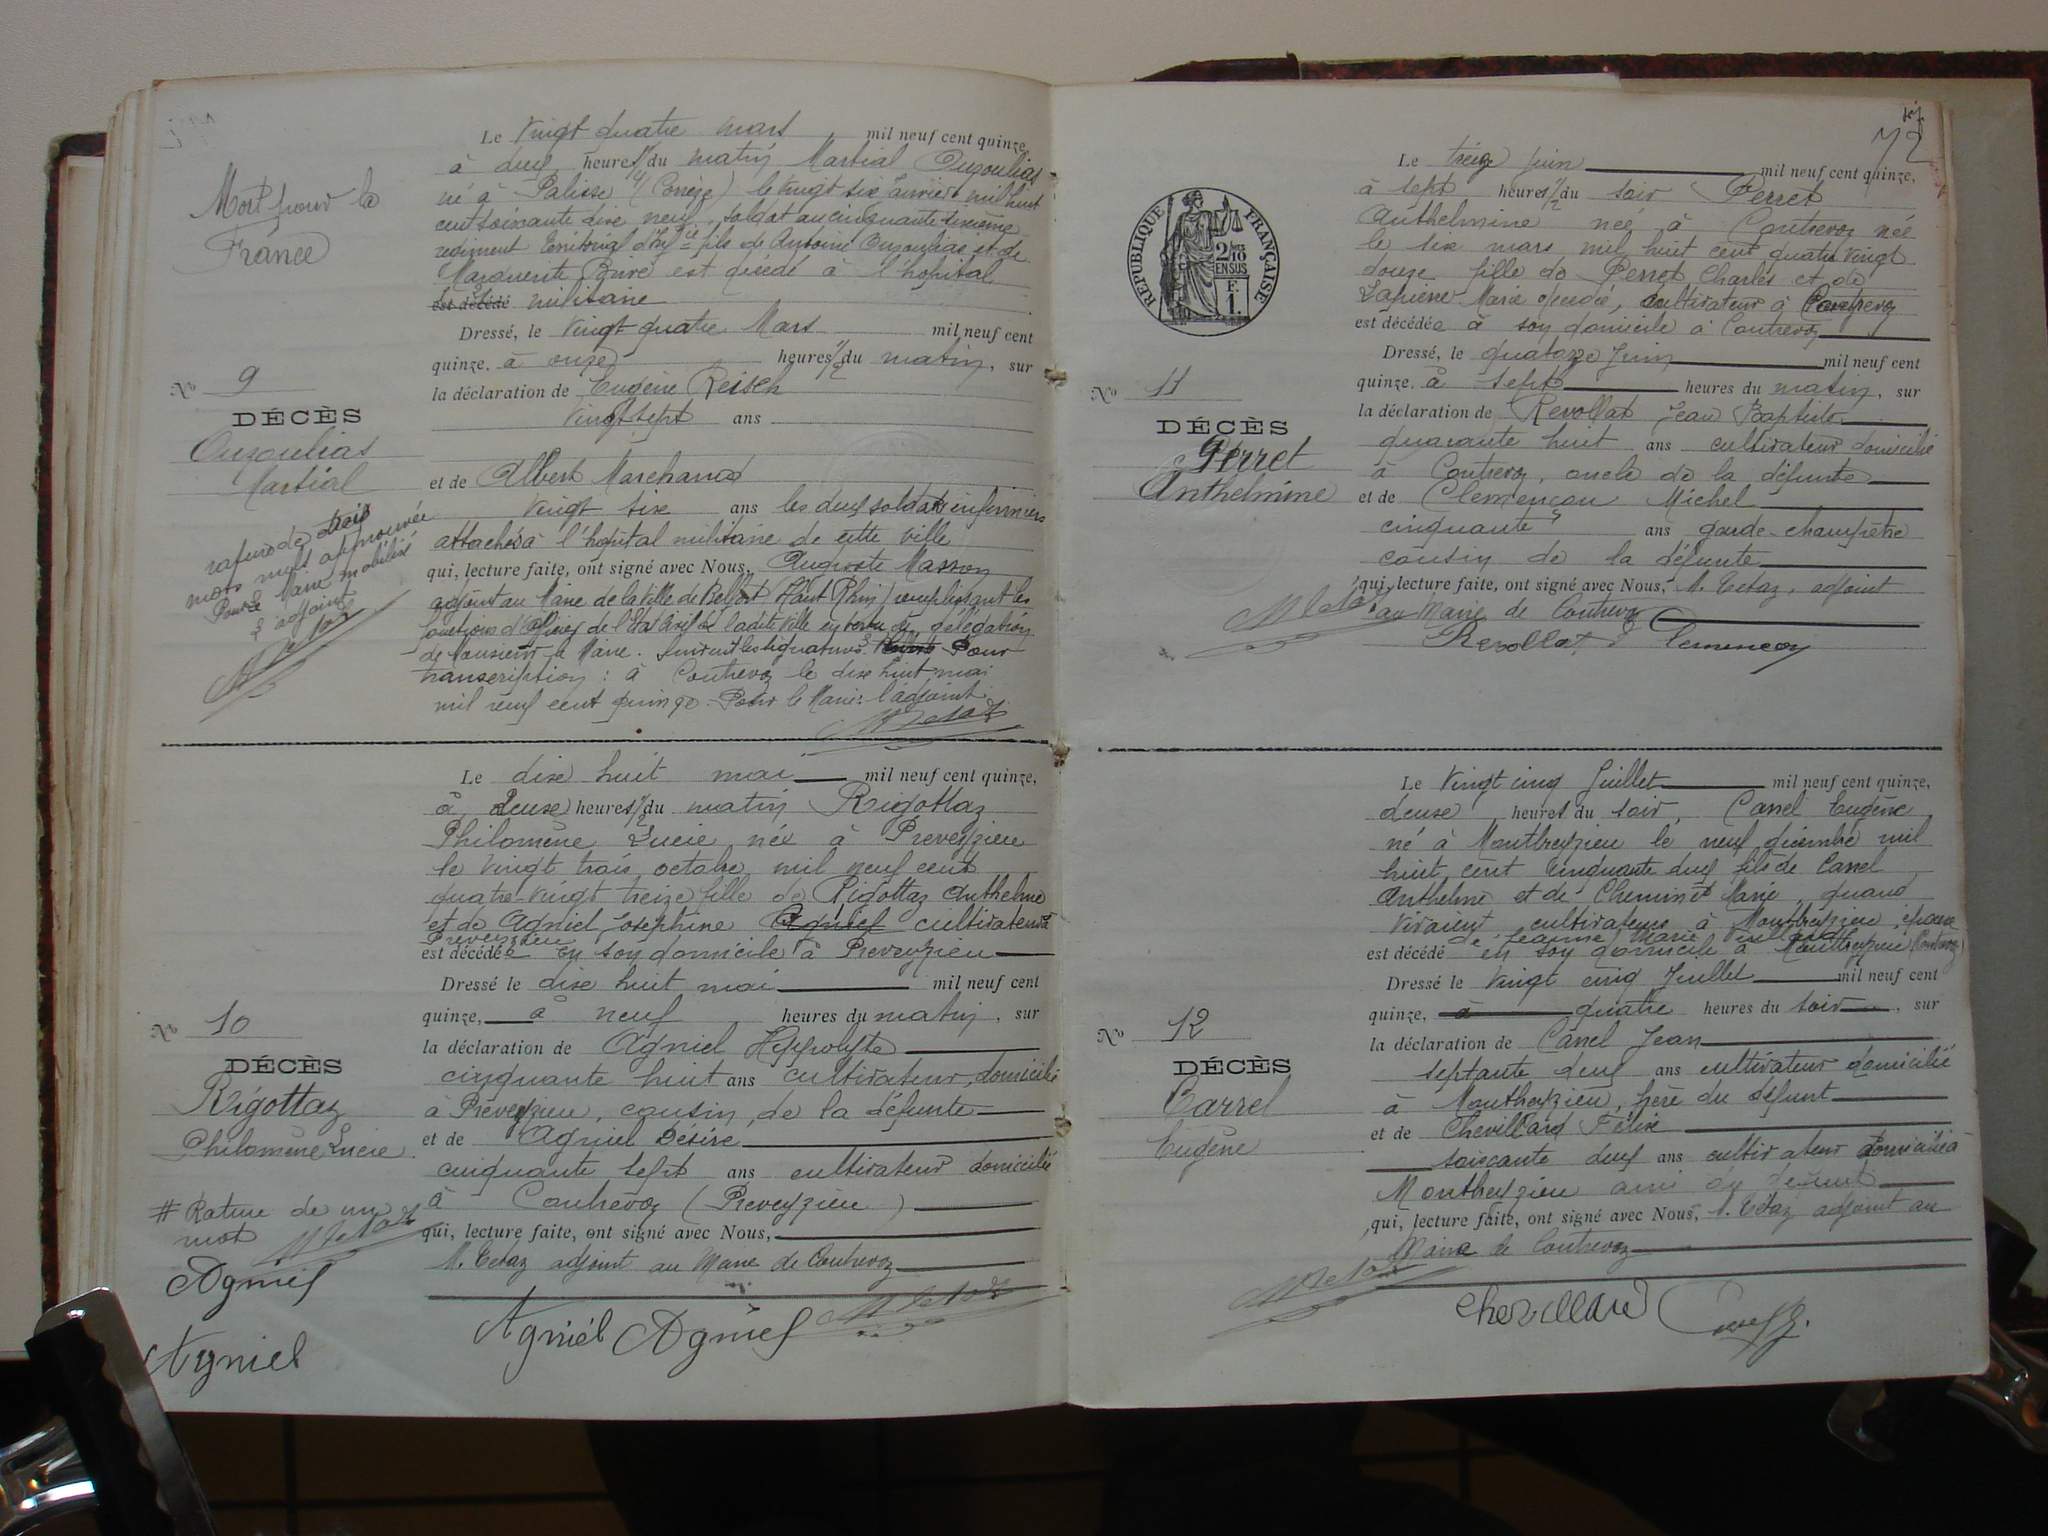 Mort pour la
France
Le Vingt quatre mars mil neuf cent quinze,
à deux heures 1/2 du matin Martial Ouzoulias
né à Palisse (Corrèze) le vingt six Janvier mil huit
cent soixante dix neuf, soldat au cinquante
régiment territorial d'Inf ie fils de Antoine Ouzoulias et de
Marguerite est décédé à l'hôpital
est décédé militaire
Dressé, le vingt quatre Mars mil neuf cent
quinze, à onze heures 1/2 du matin, sur
la déclaration de Eugène Reisch
vingt sept ans
et de Albert Marchand
vingt six ans les deux soldats infirmiers
attachés à l'hôpital militaire de cette ville
qui, lecture faite, ont signé avec Nous, Auguste Masson
adjoint au Maire de la Ville de Belfort (Haut Rhin) remplissant les
fonctions d'officier de l'Etat Civil de ladite ville en vertu de délégation
de Monsieur le Maire. Suivent les signatures Pour
transcription : à Contrevoz le dix huit mai
mil neuf cent quinze. Pour le Maire : l'adjoint
M Tetaz
No 9
DÉCÈS
Ouzoulias
Martial
rature de trois
mots nuls approuvée
Pour le Maire mobilisé
L'adjoint
M Tetaz
Le dix huit mai mil neuf cent quinze,
à deuse heures 1/2 du matin Rigottaz
Philomène Lucie née à Preveyzieu
le vingt trois octobre mil neuf cent
quatre-vingt treize fille de Rigottaz Anthelme
et de Agniel Joséphine Agniel cultivateurs à
Preveyzieu
est décédée en son domicile à Preveyzieu
Dressé le dix huit mai mil neuf cent
quinze, à neuf heures du matin, sur
la déclaration de Agniel Hippolyte
cinquante huit ans cultivateur, domicilié
à Preveyzieu, cousin, de la défunte
et de Agniel Désiré
cinquante sept ans cultivateur domicilié
à Contrevoz (Preveyzieu)
qui, lecture faite, ont signé avec Nous,
M. Tetaz adjoint au Maire de Contrevoz
Agniel Agniel M Tetaz
No 10
DÉCÈS
Rigottaz
Philomène Lucie
# Rature de un
mot M Tetaz
Agniel
Agniel
72
RÉPUBLIQUE FRANÇAISE
2/10
EN SUS
F.
1.
Le treize juin mil neuf cent quinze,
à sept heures 1/2 du soir Perret
Anthelmine née à Contrevoz née
le six mars mil huit cent quatre vingt
douze fille de Perret Charles et de
Lapierre Marie, cultivateur à Contrevoz
est décédée à son domicile à Contrevoz
Dressé, le quatorze Juin mil neuf cent
quinze, à sept heures du matin, sur
la déclaration de Revollat Jean Baptiste
quarante huit ans cultivateur domicilié
à Contrevoz, oncle de la défunte
et de Clemençon Michel
cinquante ans garde-champêtre
cousin de la défunte
qui, lecture faite, ont signé avec Nous, M. Tetaz, adjoint
au Maire de Contrevoz
M Tetaz Revollat Clemençon
No 11
DÉCÈS
Perret
Anthelmine
Le Vingt cinq Juillet mil neuf cent quinze,
deuse heures du soir, Carrel Eugène
né à Montbreyzieu le neuf décembre mil
huit cent cinquante deux fils de Carrel
Anthelme et de Cheminet Marie, quand
vivaient cultivateurs à Montbreyzieu, époux
de Jeanne Marie
est décédé en son domicile à Montbreyzieu (Contrevoz)
Dressé le vingt cinq Juillet mil neuf cent
quinze, à quatre heures du soir, sur
la déclaration de Carrel Jean
septante deux ans cultivateur domicilié
à Montbreyzieu, frère du défunt
et de Chevillard Félix
soixante deux ans cultivateur domicilié à
Montbreyzieu ami du défunt
qui, lecture faite, ont signé avec Nous, M. Tetaz adjoint au
Maire de Contrevoz
M Tetaz Chevillard
No 12
DÉCÈS
Carrel
Eugène